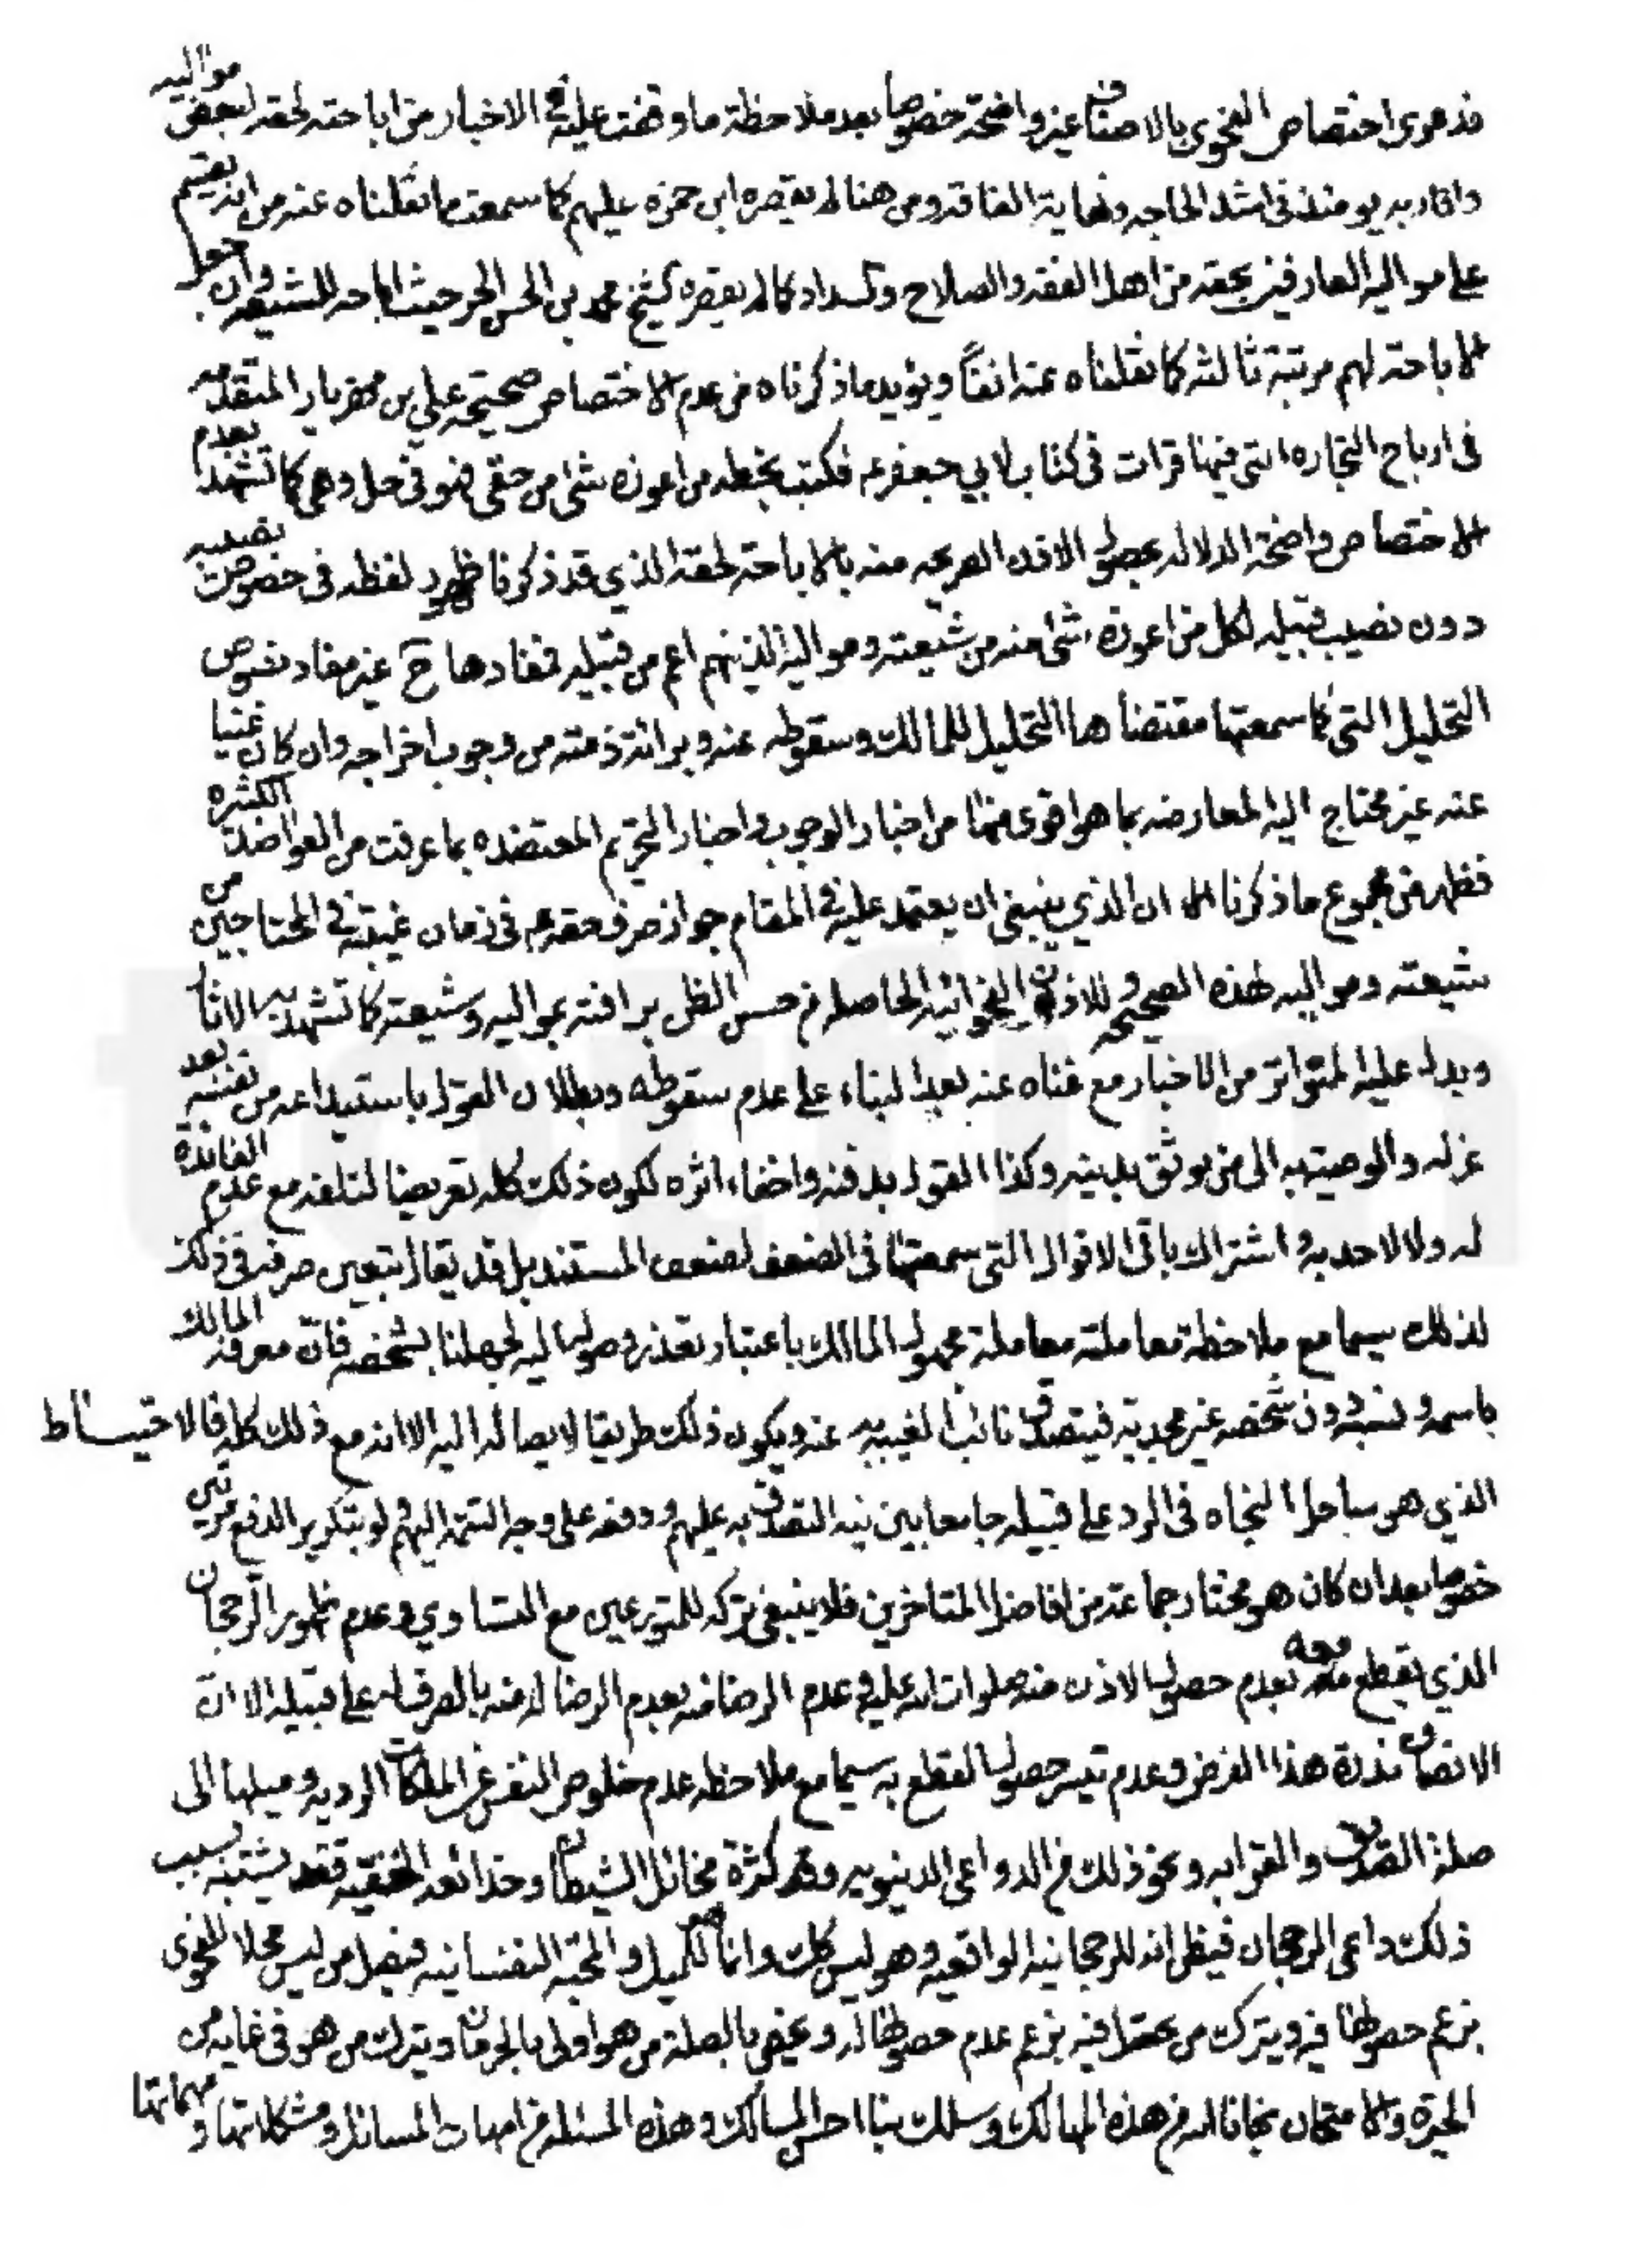 فدعوى اختصاص الفحوى بالاصناف غير واضحة خصوصا بعد ملاحظة ما وقفت عليه في الاخبار من اباحته لحقه لبعض مواليه
واقاربه يومئذ في اشد الحاجه ونهاية الفاقه ومن هنا لم يقصره ابن حمزه عليهم كما سمعت ما نقلناه عنه من انه يقسم
على مواليه العارفين بحقه من اهل الفقه والصلاح والسداد كما لم يقصره الشيخ محمد بن الحسن الحر حيث اباحه للشيعه وان جعل
الاباحة لهم مرتبة ثالثه كما نقلناه عنه انفاً ويؤيد ما ذكرناه من عدم الاختصاص صحيحة علي بن مهزيار المتقدمه
في ارباح التجاره التي فيها قرات في كتاب لابي جعفر ع فكتب بخطه من اعوزه شئ من حقي فهو في حل وهي كما تشهد بعدم
الاختصاص واضحة الدلاله بحصول الاذن الصريحه منه بالاباحة لحقه الذي قد ذكرنا ظهور لفظه في خصوص نصيبه
دون نصيب قبيله لكل من اعوزه شئ منه من شيعته ومواليه الذينهم اعم من قبيله فمفادها ح غير مفاد نصوص
التحليل التي كما سمعتها مقتضاها التحليل للمالك وسقوطه عنه وبرائة ذمته من وجوب اخراجه وان كان غنيا
عنه غير محتاج اليه المعارضه بما هو اقوى منها من اخبار الوجوب واخبار التحريم المعتضده بما عرفت من العواضد الكثيره
فظهر من مجموع ما ذكرنا ان الذي ينبغي ان يعتمد عليه في المقام جواز صرف حقه ع في زمان غيبته في المحتاجين من
شيعته ومواليه لهذه الصحيحه وللاذن الفحوائيه الحاصله من حسن الظن برافته بمواليه وشيعته كما تشهد به الاثار
ويدل عليه المتواتر من الاخبار مع غناه عنه بعد البناء على عدم سقوطه وبطلان القول باستيداعه من نفسه بعد
عزله والوصية به الى من يوثق بدينه وكذا القول بدفنه واخفاء اثره لكون ذلك كله تعريضا لتلفه مع عدم الفائدة
له ولا لاحد به واشتراك باقي الاقوال التي سمعتها في الضعف لضعف المستند بل قد يقال بتعين صرفه في ذلك
لذلك سيما مع ملاحظة معاملته معاملة مجهول المالك باعتبار تعذر وصوله اليه لجهلنا بشخصه فان معرفة المالك
باسمه ونسبه دون شخصه غير مجدية فيتصدق نائب الغيبه عنه ويكون ذلك طريقا لايصاله اليه الا انه مع ذلك كله فالاحتياط
الذي هو ساحل النجاه في الرد على قبيله جامعا بين نيه التصدق به عليهم ودفعه على وجه التتمه اليهم ولو بتكرير الدفع مرتين
خصوصا بعد ان كان هو مختار جماعة من افاضل المتاخرين فلا ينبغي تركه للمتورعين مع التساوي وعدم ظهور الرجحان
الذي يقطع معه بعدم حصول الاذن منه صلوات الله عليه وعدم الرضا منه بعدم الرضا له منه بالصرف له على قبيله الا ان
الانصاف ندرة هذا الفرض وعدم تيسر حصول القطع به سيما مع ملاحظه عدم خلوص النفس عن الملكات الرديه وميلها الى
صلة الصديق والقرابه ونحو ذلك من الدواعي الدنيويه وقد كثرة مخائل الشيطان وخدائعه الخفيه فقد يشتبه بسبب
ذلك داعي الرجحان فيظن انه للرجحانيه الواقعيه وهو ليس كك وانما هو للميل والمحبه النفسانيه فيصل من ليس محلا للفحوى
بزعم حصولها فيه ويترك من تحقق فيه بزعم عدم حصولها له ويخص بالصلة من هو اولى بالحرمان ويترك من هو في غايه من
الحيرة والامتحان نجانا الله من هذه المهالك وسلك بنا احسن المسالك وهذه المسئله من امهات المسائل ومشكلاتها ومهماتها